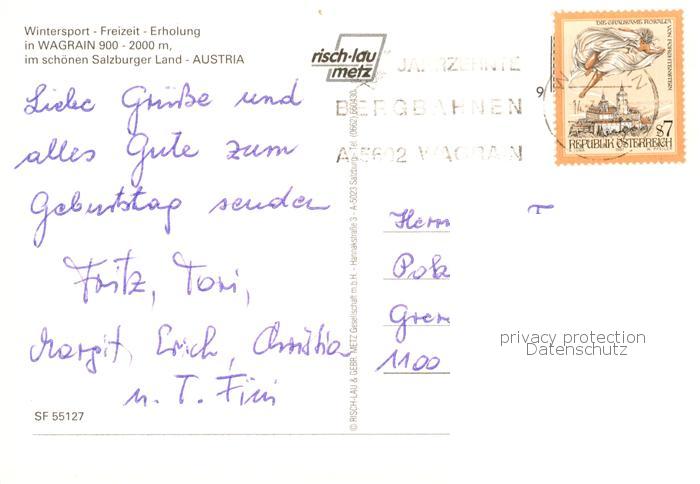 Wintersport - Freizeit - Erholung
in WAGRAIN 900 - 2000 m,
im schönen Salzburger Land - AUSTRIA
risch-lau
metz
Liebe Grüße und
alles Gute zum
Geburtstag senden
Fritz, Toni,
Margit, Erich, Christia
u. T. Fini
SF 55127
© RISCH-LAU & GEBR. METZ Gesellschaft m.b.H. - Hannakstraße 3 - A-5023 Salzburg - Tel. (0662)
JAHRZEHNTE
BERGBAHNEN
A-5602 WAGRAIN
DIE GRAUSAME ROSALIA VON FORCHTENSTEIN
S7
REPUBLIK ÖSTERREICH
Herrn
Pola
Gren
1100
privacy protection
Datenschutz